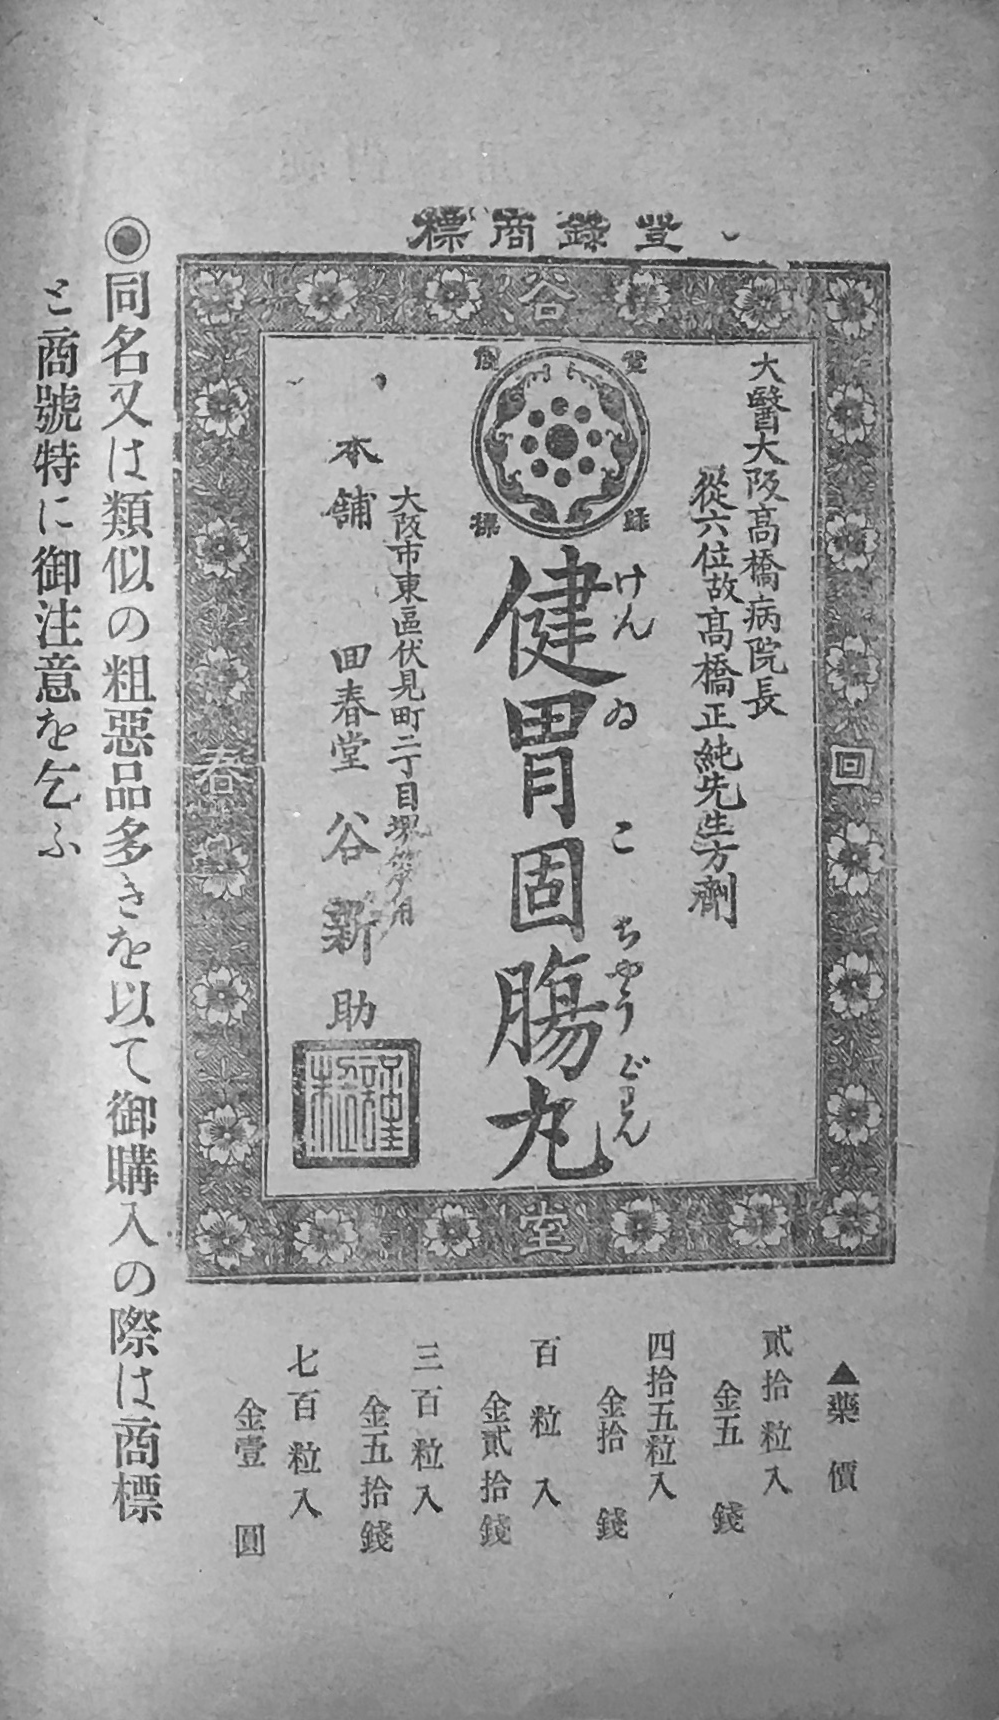 登錄商標
谷
回
春
堂
大醫大阪高橋病院長
從六位故高橋正純先生方劑
登錄商標
けんゐこちやうぐわん
健胃固腸丸
大阪市東區伏見町二丁目堺筋角
本舗 回春堂 谷新助
▲藥價
貳拾粒入
金五錢
四拾五粒入
金拾錢
百粒入
金貳拾錢
三百粒入
金五拾錢
七百粒入
金壹圓
◉同名又は類似の粗惡品多きを以て御購入の際は商標
と商號特に御注意を乞ふ